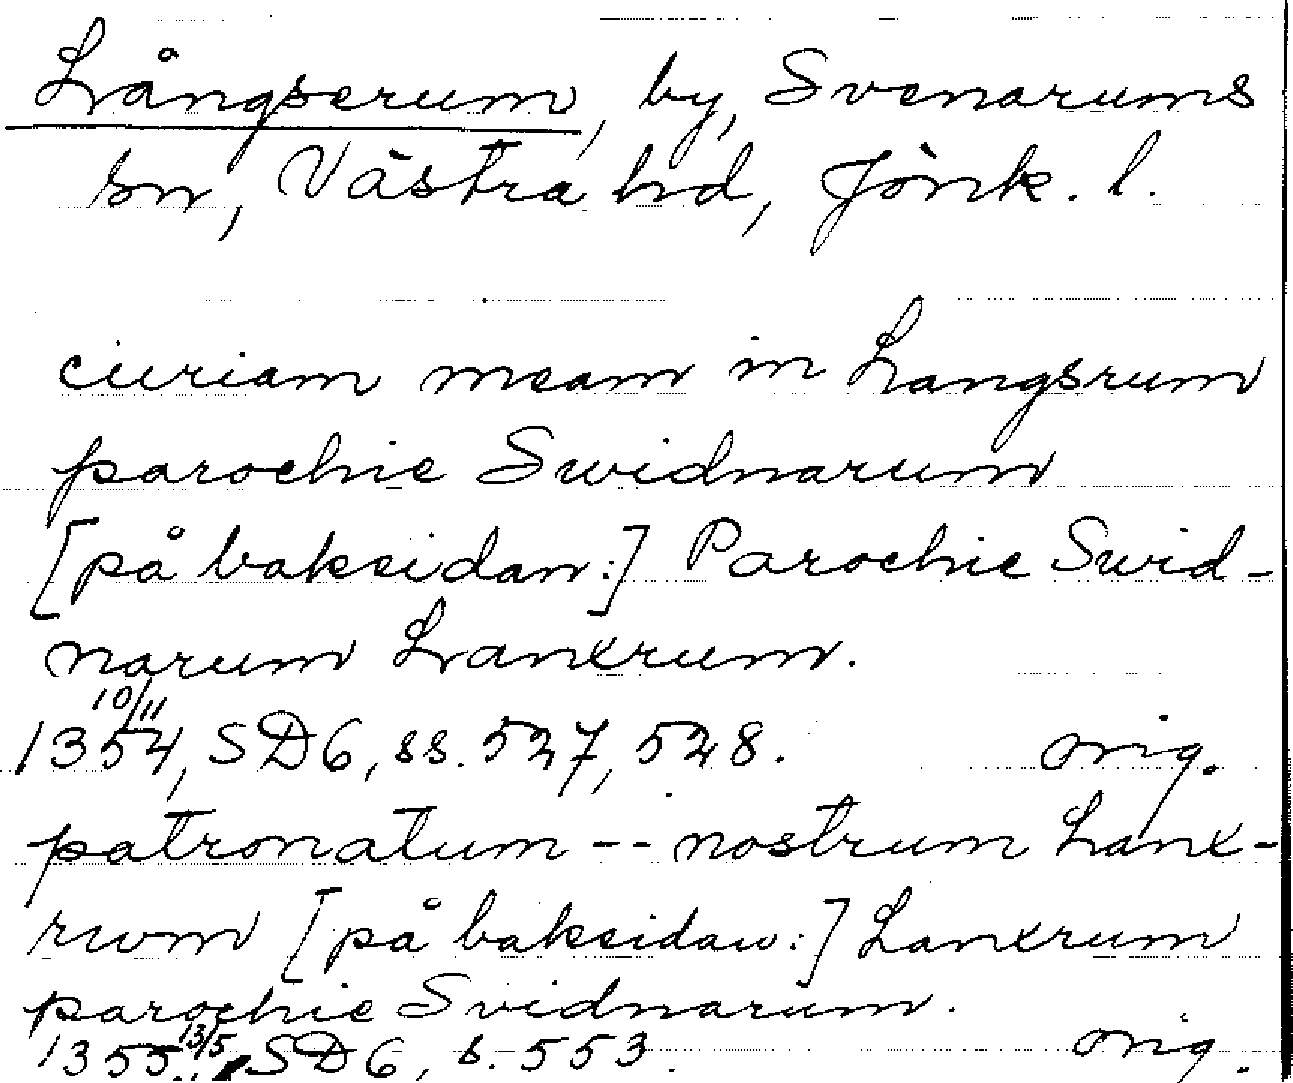 Långserum, by, Svenarums
sn, Västra hd, Jönk. l.
curiam meam in Langsrum
parochie Swidnarum
[på baksidan:] Parochie Swid-
narum Lanxrum.
1354 10/11, SD 6, ss. 527, 528. orig.
patronatum -- nostrum Lanx-
rwm [på baksidan:] Lanxrum
parochie Svidnarum.
1355 13/5, SD 6, s. 553. orig.